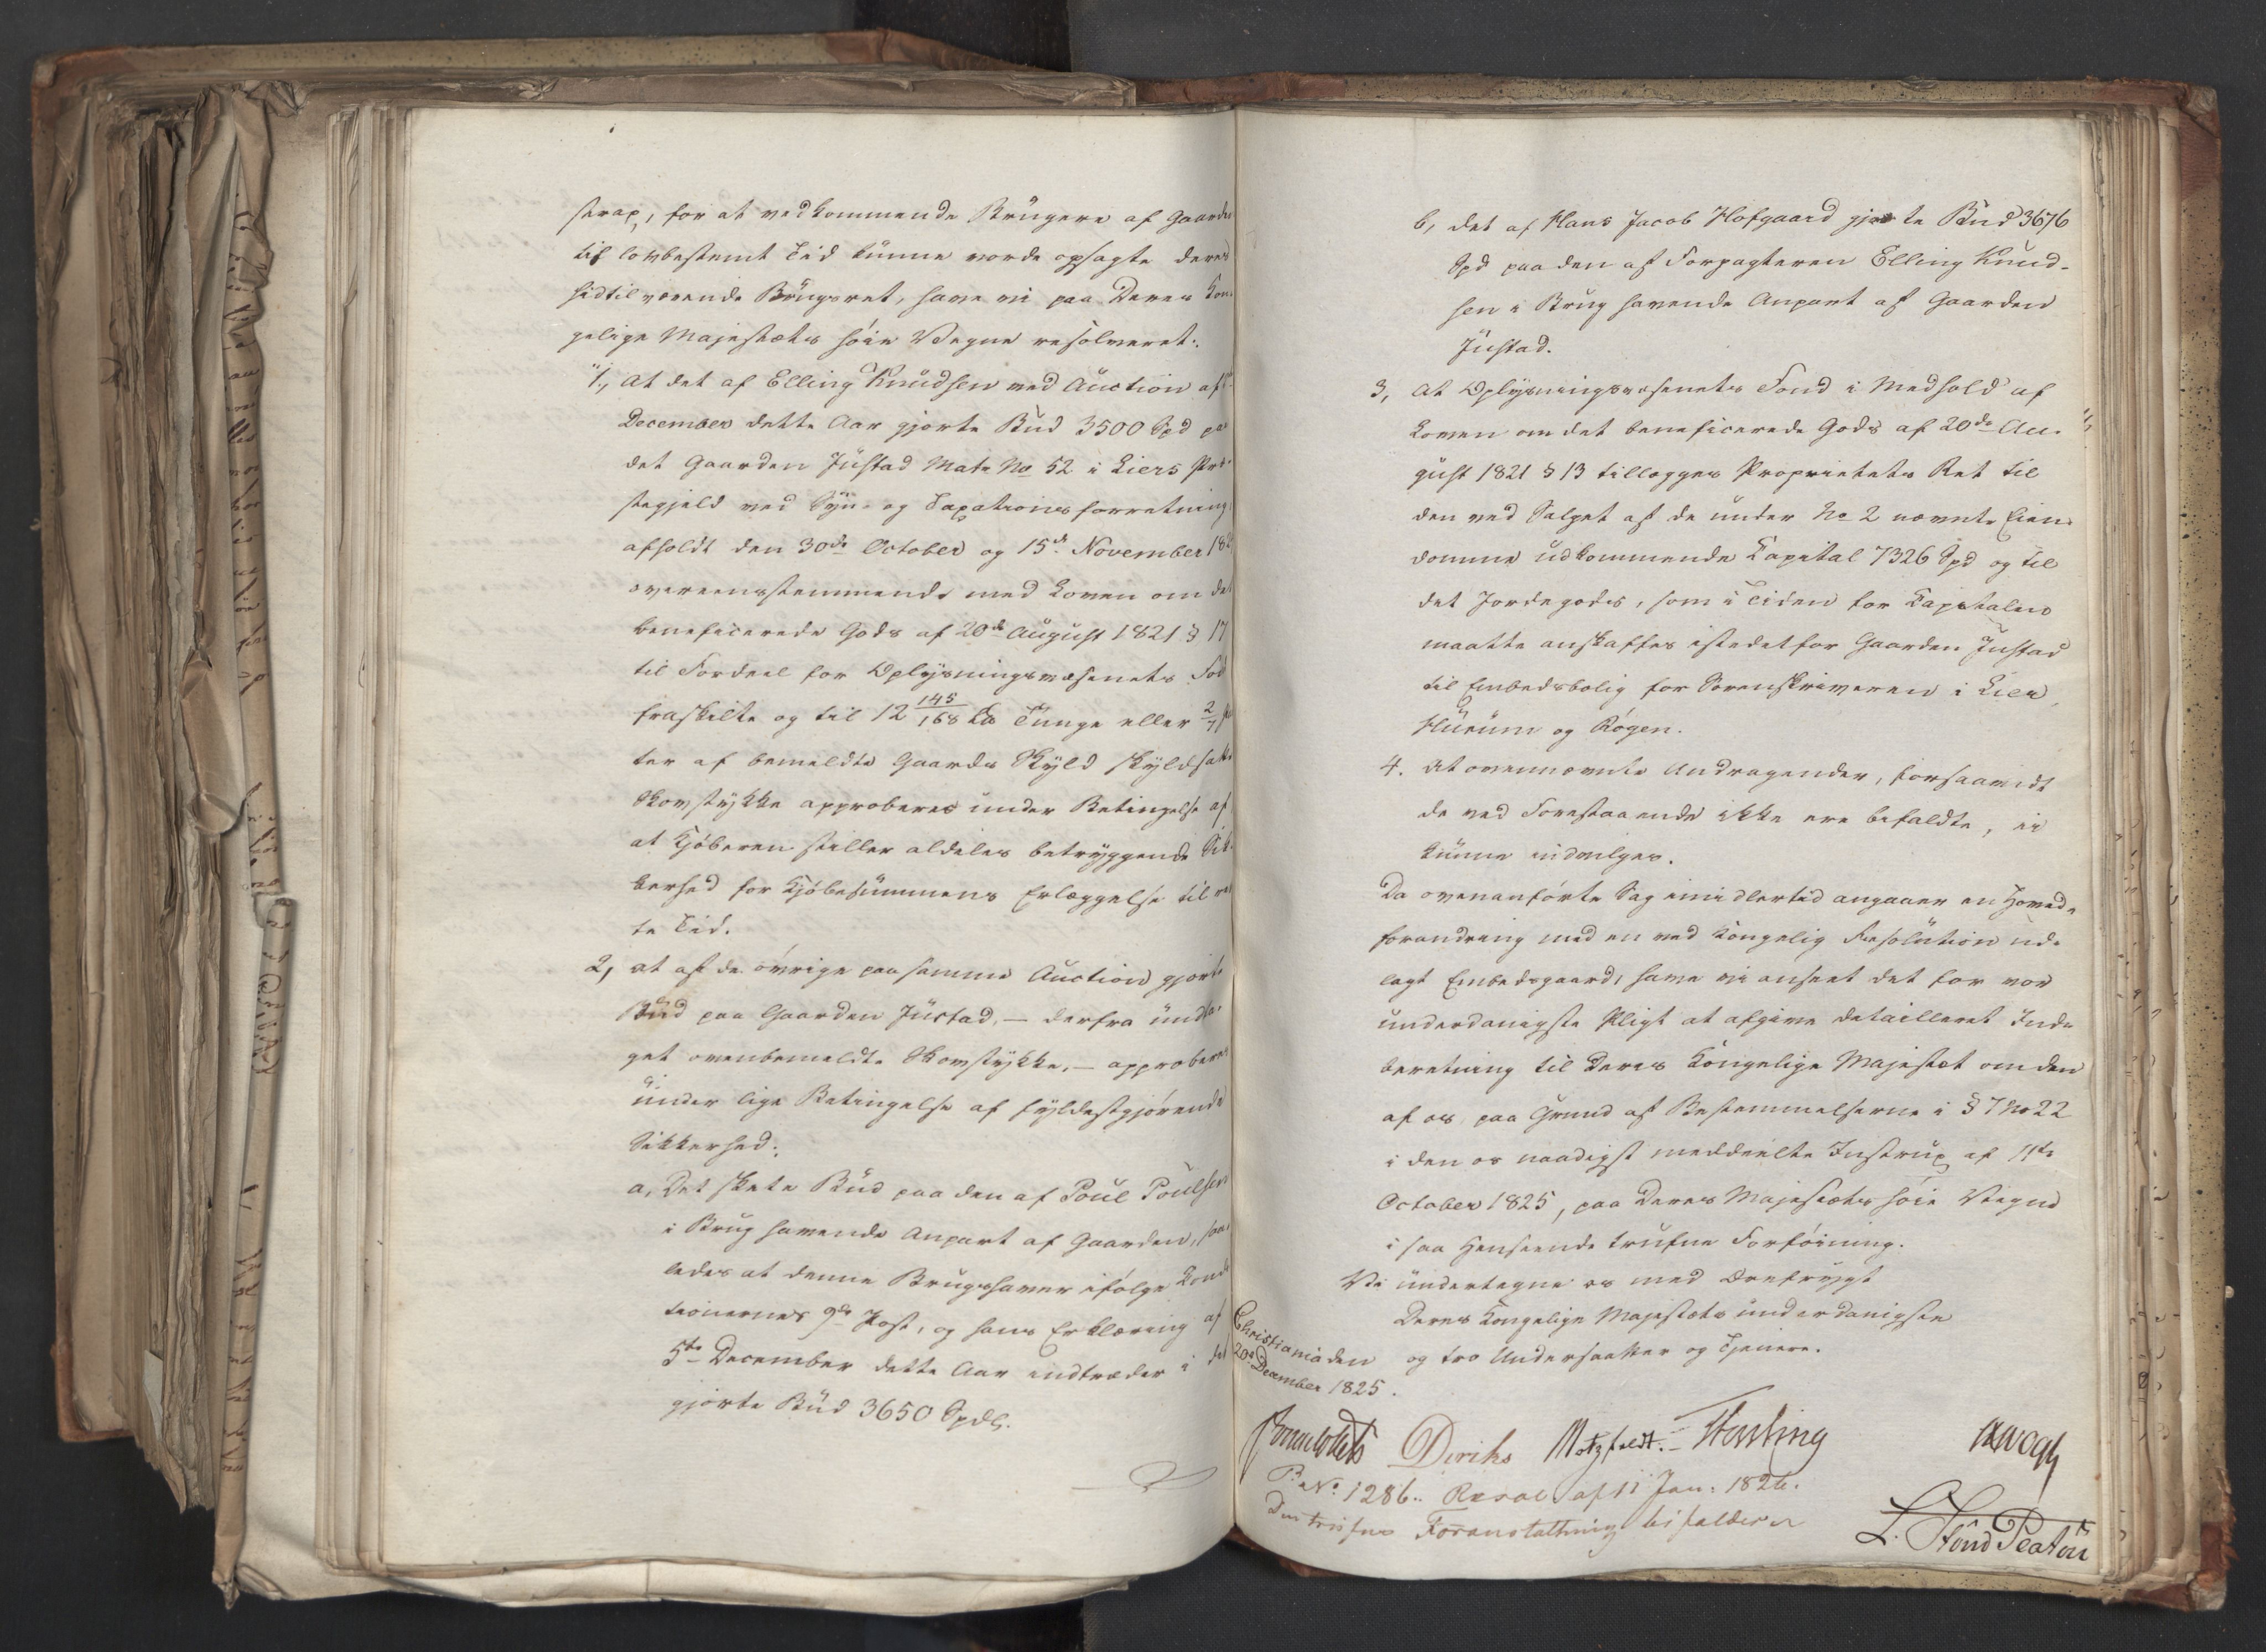 strax, for at vedkommende Brugere af Gaarden
til lovbestemt Tid kunne vorde opsagte deres
hidtilværende Brugsret, have vi paa Deres Kon-
gelige Majestæts høie Vegne resolveret:
"1., At det af Elling Knudsen ved Auction af
December dette Aar gjorte Bud 3500 Spd paa
det Gaarden Justad Mate No 52 i Liers Præ-
stegjeld ved Syns og Taxationsforretning
afholdt den 30de October og 15de November 182
overeensstemmende med Loven om det
beneficerede Gods af 20de August 1821 § 17
til Fordeel for Oplysningsvæsenets Fond
fraskilte og til 12 145/168 Tunge eller 2/7
ter af bemeldte Gaards Skyld skyldsatte
Skovstykke approberes under Betingelse af
at Kjøberen stiller aldeles betryggende Sik-
kerhed for Kjøbesummens Erlæggelse til ret
te Tid.
2, at af de øvrige paa samme Auction gjorte
Bud paa Gaarden Justad, — derfra undta-
get ovenbemeldte Skovstykke, — approberes
under lige Betingelse af fyldestgjørende
Sikkerhed:
a, Det skete Bud paa den af Poul Poulsen
i Brug havende Anpart af Gaarden, saa-
ledes at denne Brugshaver ifølge Condi
tionernes 9de Post, og hans Erklæring af
5te December dette Aar indtræder i det
gjorte Bud 3650 Spd.
b, det af Hans Jacob Hofgaard gjorte Bud 3676
Spd paa den af Forpagteren Elling Knud-
sen i Brug havende Anpart af Gaarden
Justad.
3, At Oplysningsvæsenets Fond i Medhold af
Loven om det beneficerede Gods af 20de Au-
gust 1821 § 13 tillægges Proprietets Ret til
den ved Salget af de under No 2 nævnte Eien-
domme udkommende Capital 7326 Spd og til
det Jordegods, som i Tiden for Capitalen
maatte anskaffes istedetfor Gaarden Justad
til Embedsbolig for Sorenskriveren i Lier,
Hurum og Røgen.
4. At ovennævnte Andragender, forsaavidt
de ved Forestaaende ikke ere befaldte, ei
kunne indvilges.
Da ovenanførte Sag imidlertid angaaer en Hoved-
forandring med en ved Kongelig Resolution ud-
lagt Embedsgaard, have vi anseet det for vor
underdanigste Pligt at afgive detailleret Ind-
beretning til Deres Kongelige Majestæt om den
af os paa Grund af Bestemmelserne i § 7 No 22
i den os naadigst meddeelte Instrux af 11te
October 1825, paa Deres Majestæts høie Vegne
i saa Henseende trufne Forføining.
Vi undertegne os med Ærefrygt
Deres Kongelige Majestæts underdanigste
og tro Undersaatter og Tjenere.
Christiania den
20de December 1825.
Diriks Motzfeldt. Fasting
P: No: 1286. Resol. af 11 Jan: 1826.
Den trufne Foranstaltning bifaldes